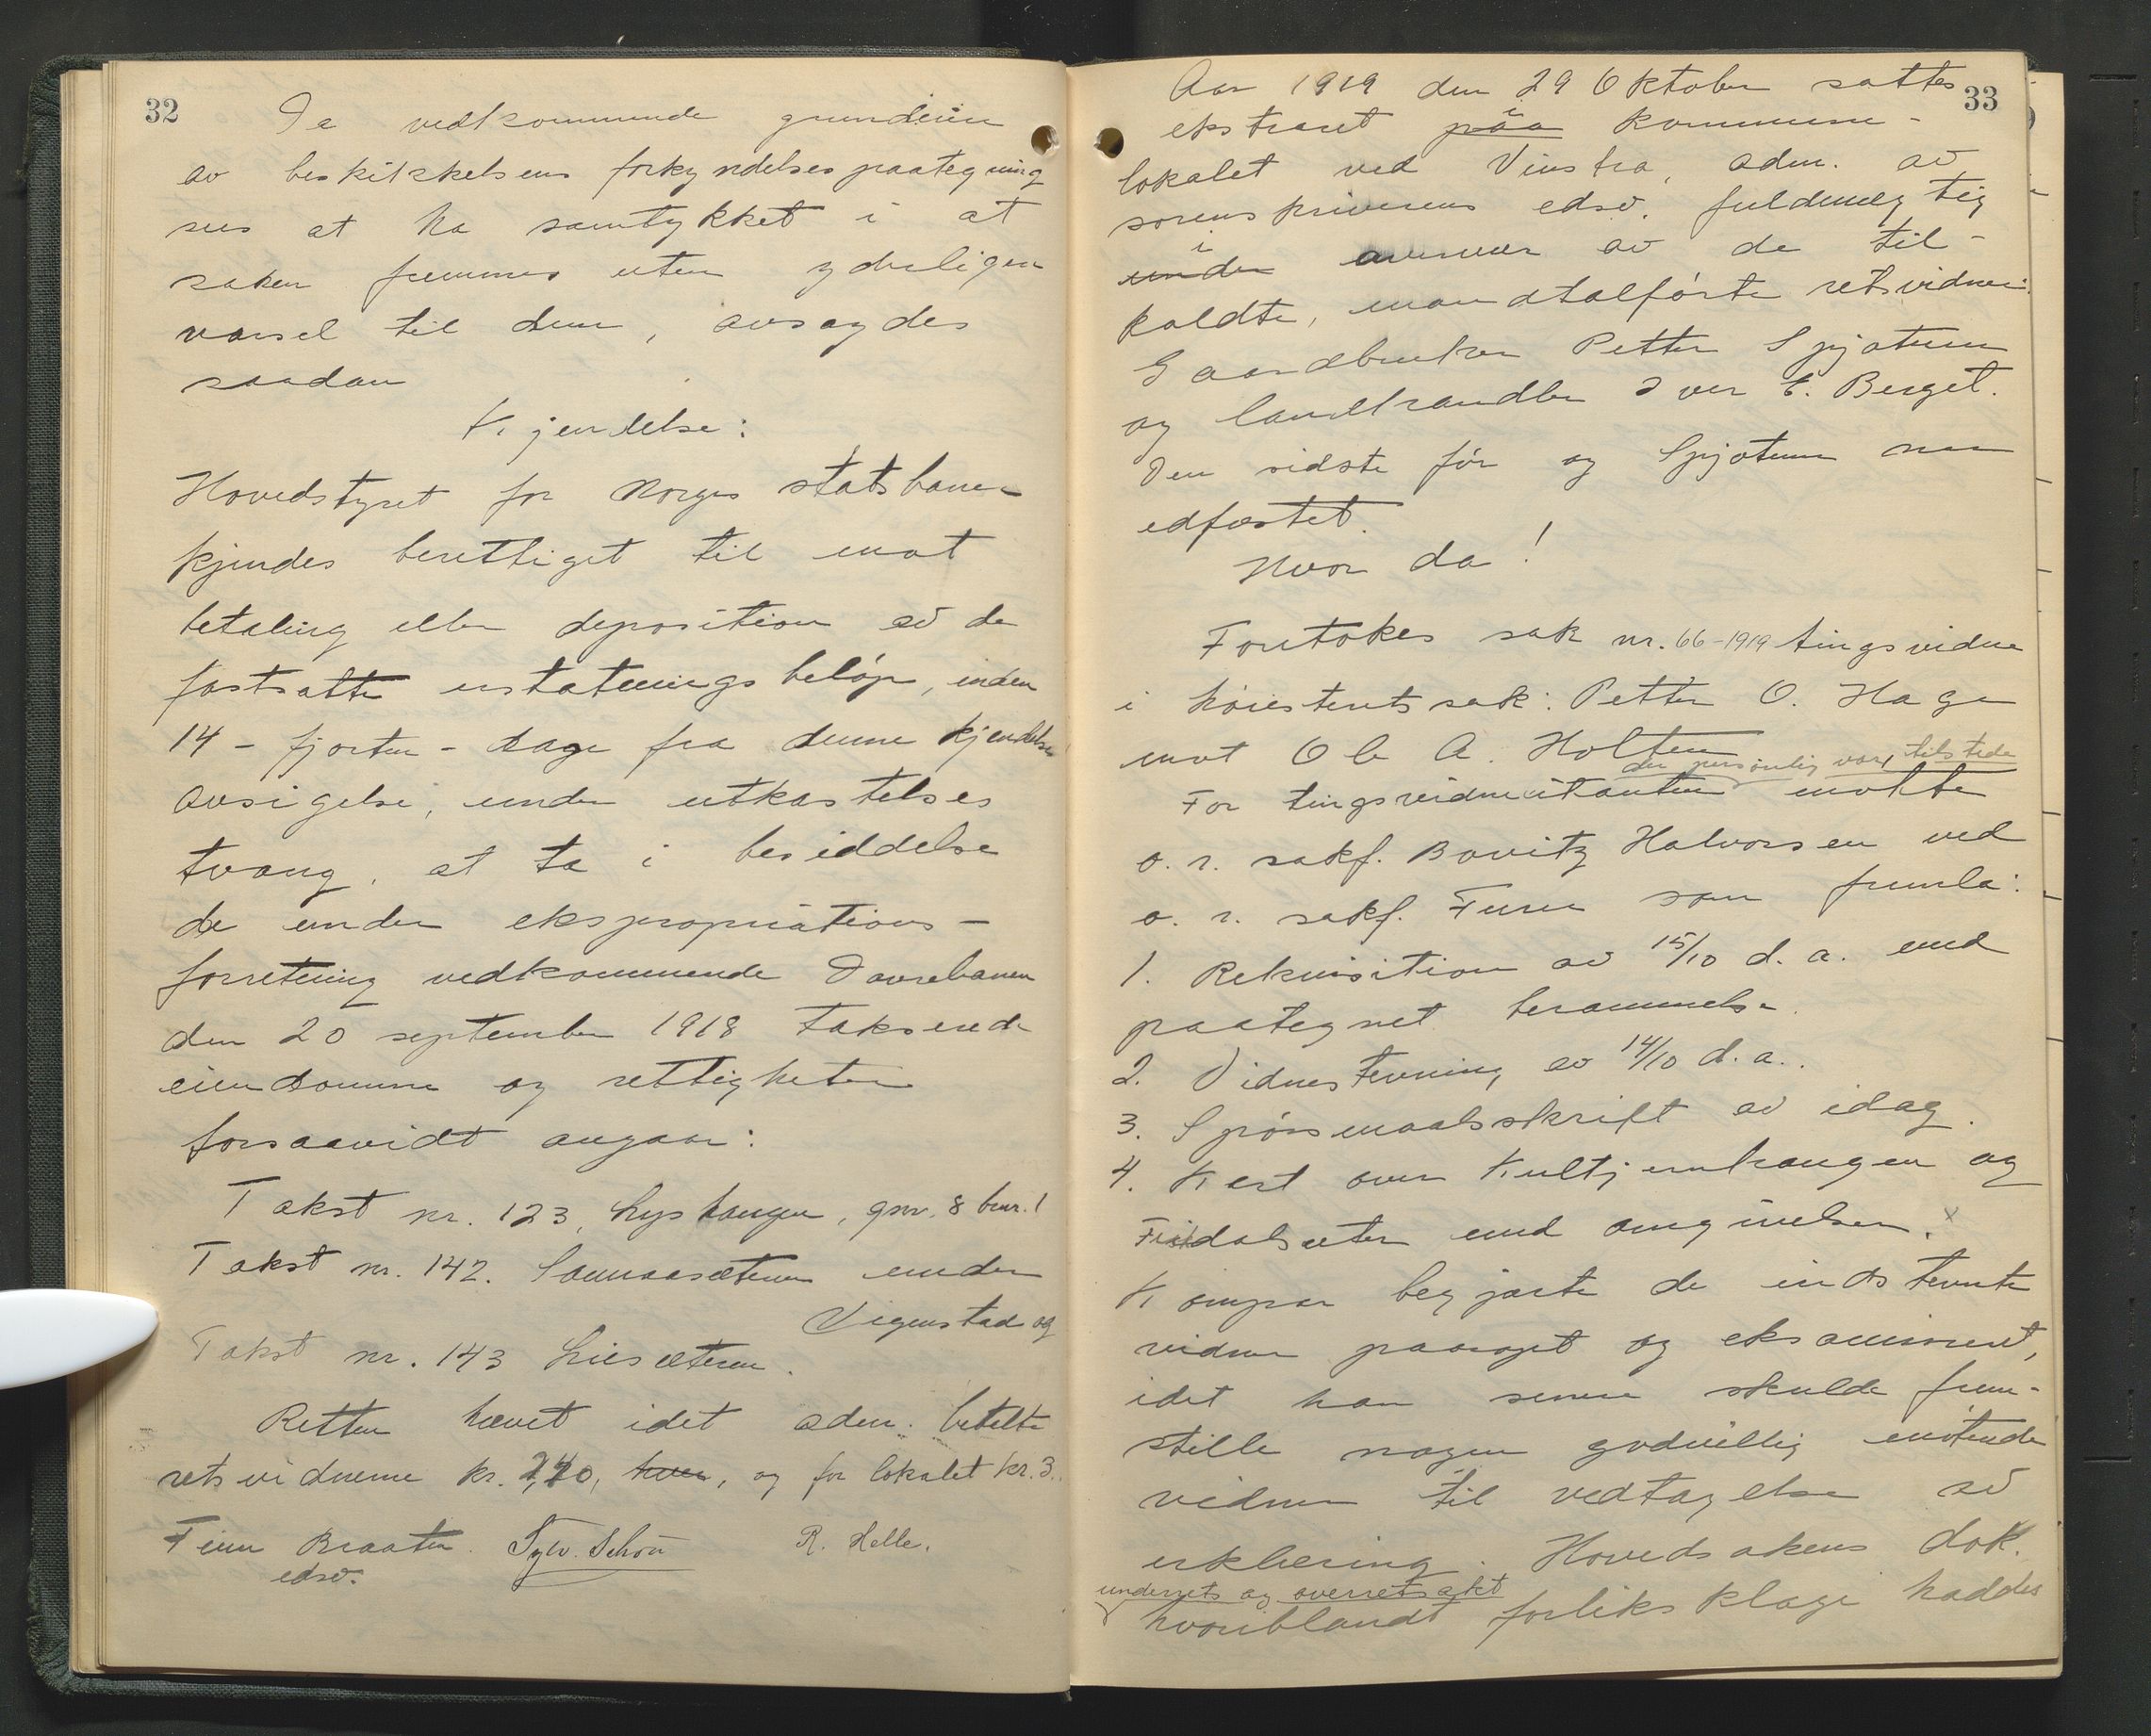 32
Da vedkommende grundeiere
av beskikkelsens forkyndelsespaategning
sees at ha samtykket i at
saken fremmes uten yderligere
varsel til dem, avsagdes
saadan
Kjendelse:
Hovedstyret for Norges statsbaner
kjendes berettiget til mot
betaling eller deposition av de
fastsatte erstatnings beløp, inden
14 - fjorten - dage fra denne kjendelses
avsigelse, under utkastelses
tvang, at ta i besiddelse
de under ekspropriations-
forretning vedkommende Dovrebanen
den 20 september 1918 takserede
eiendomme og rettigheter
forsaavidt angaar:
Takst nr. 123, Lyshaugen, gnr. 8 bnr. 1
Takst nr. 142. under
Vigenstad og
Takst nr. 143 Liesæteren.
Retten hævet idet adm. betalte
retsvidnerne kr. 2,40, hver, og for lokalet kr. 3.
Finn Braaten Sylv. Schou R. Helle.
edsv.
33
Aar 1919 den 29 Oktober sattes
ekstraret paa i kommune-
lokalet ved Vinstra, adm. av
sorenskriverens edsv. fuldmægtig
under i overvær av de til-
kaldte, mandtalførte retsvidner:
Gaardbruker Petter Spjotun
og landhandler Iver E. Berget.
Den sidste før og Spjotun nu
edfæstet.
Hvor da!
Foretokes sak nr. 66-1919 tingsvidne
i høiesteretssak: Petter O. Hage
mot Ole A. Holten
der personlig var tilstede
For tingsvidnecitanten møtte
o. r. sakf. Bovitz Halvorsen ved
o. r. sakf. Furu som fremla:
1. Rekvisition av 15/10 d. a. med
paategnet berammelse.
2. Vidnestevning av 14/10 d. a..
3. Spørsmaalsskrift av idag.
4. Kart over og
med omgivelser. x
Kompar. begjærte de indstevnte
vidner paaropt og eksaminert,
idet han senere skulde frem-
stille nogen godvillig møtende
vidner til vedtagelse av
erklæring. Hovedsakens dok.
underrets og overretsakt
hvoriblandt forliksklage haddes